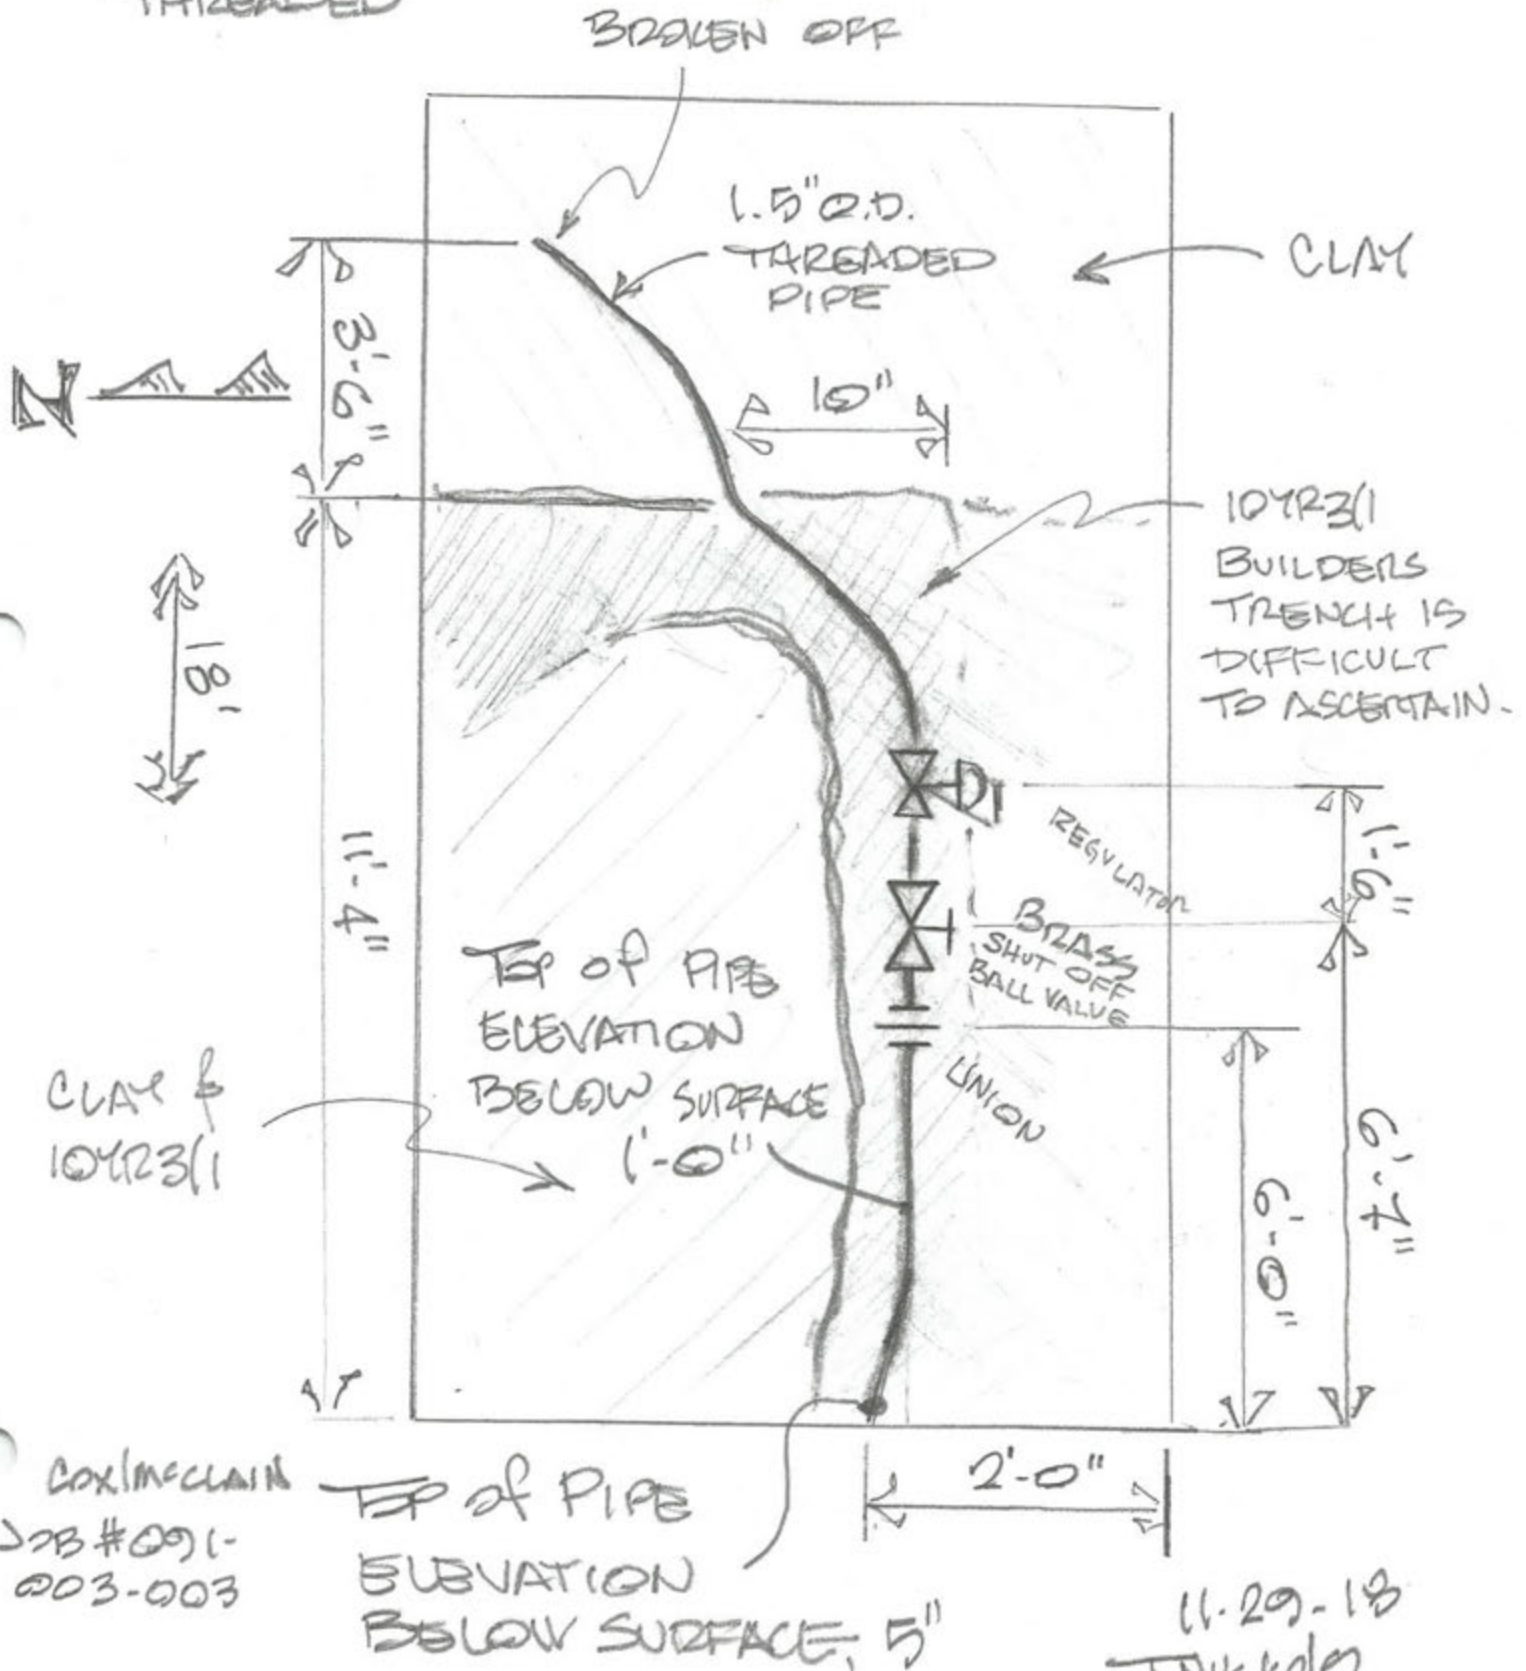 THREADED
BROKEN OFF
1.5" O.D.
THREADED
PIPE
CLAY
3'-6"
N
10"
10YR3/1
BUILDERS
TRENCH IS
DIFFICULT
TO ASCERTAIN.
18'
11'-4"
REGULATOR
1'-6"
BRASS
SHUT OFF
BALL VALUE
Top of PIPE
ELEVATION
BELOW SURFACE
1'-0"
UNION
CLAY &
10YR3/1
6'-0"
6'-7"
2'-0"
COX/McCLAIN
JOB #091-
003-003
Top of PIPE
ELEVATION
BELOW SURFACE, 5"